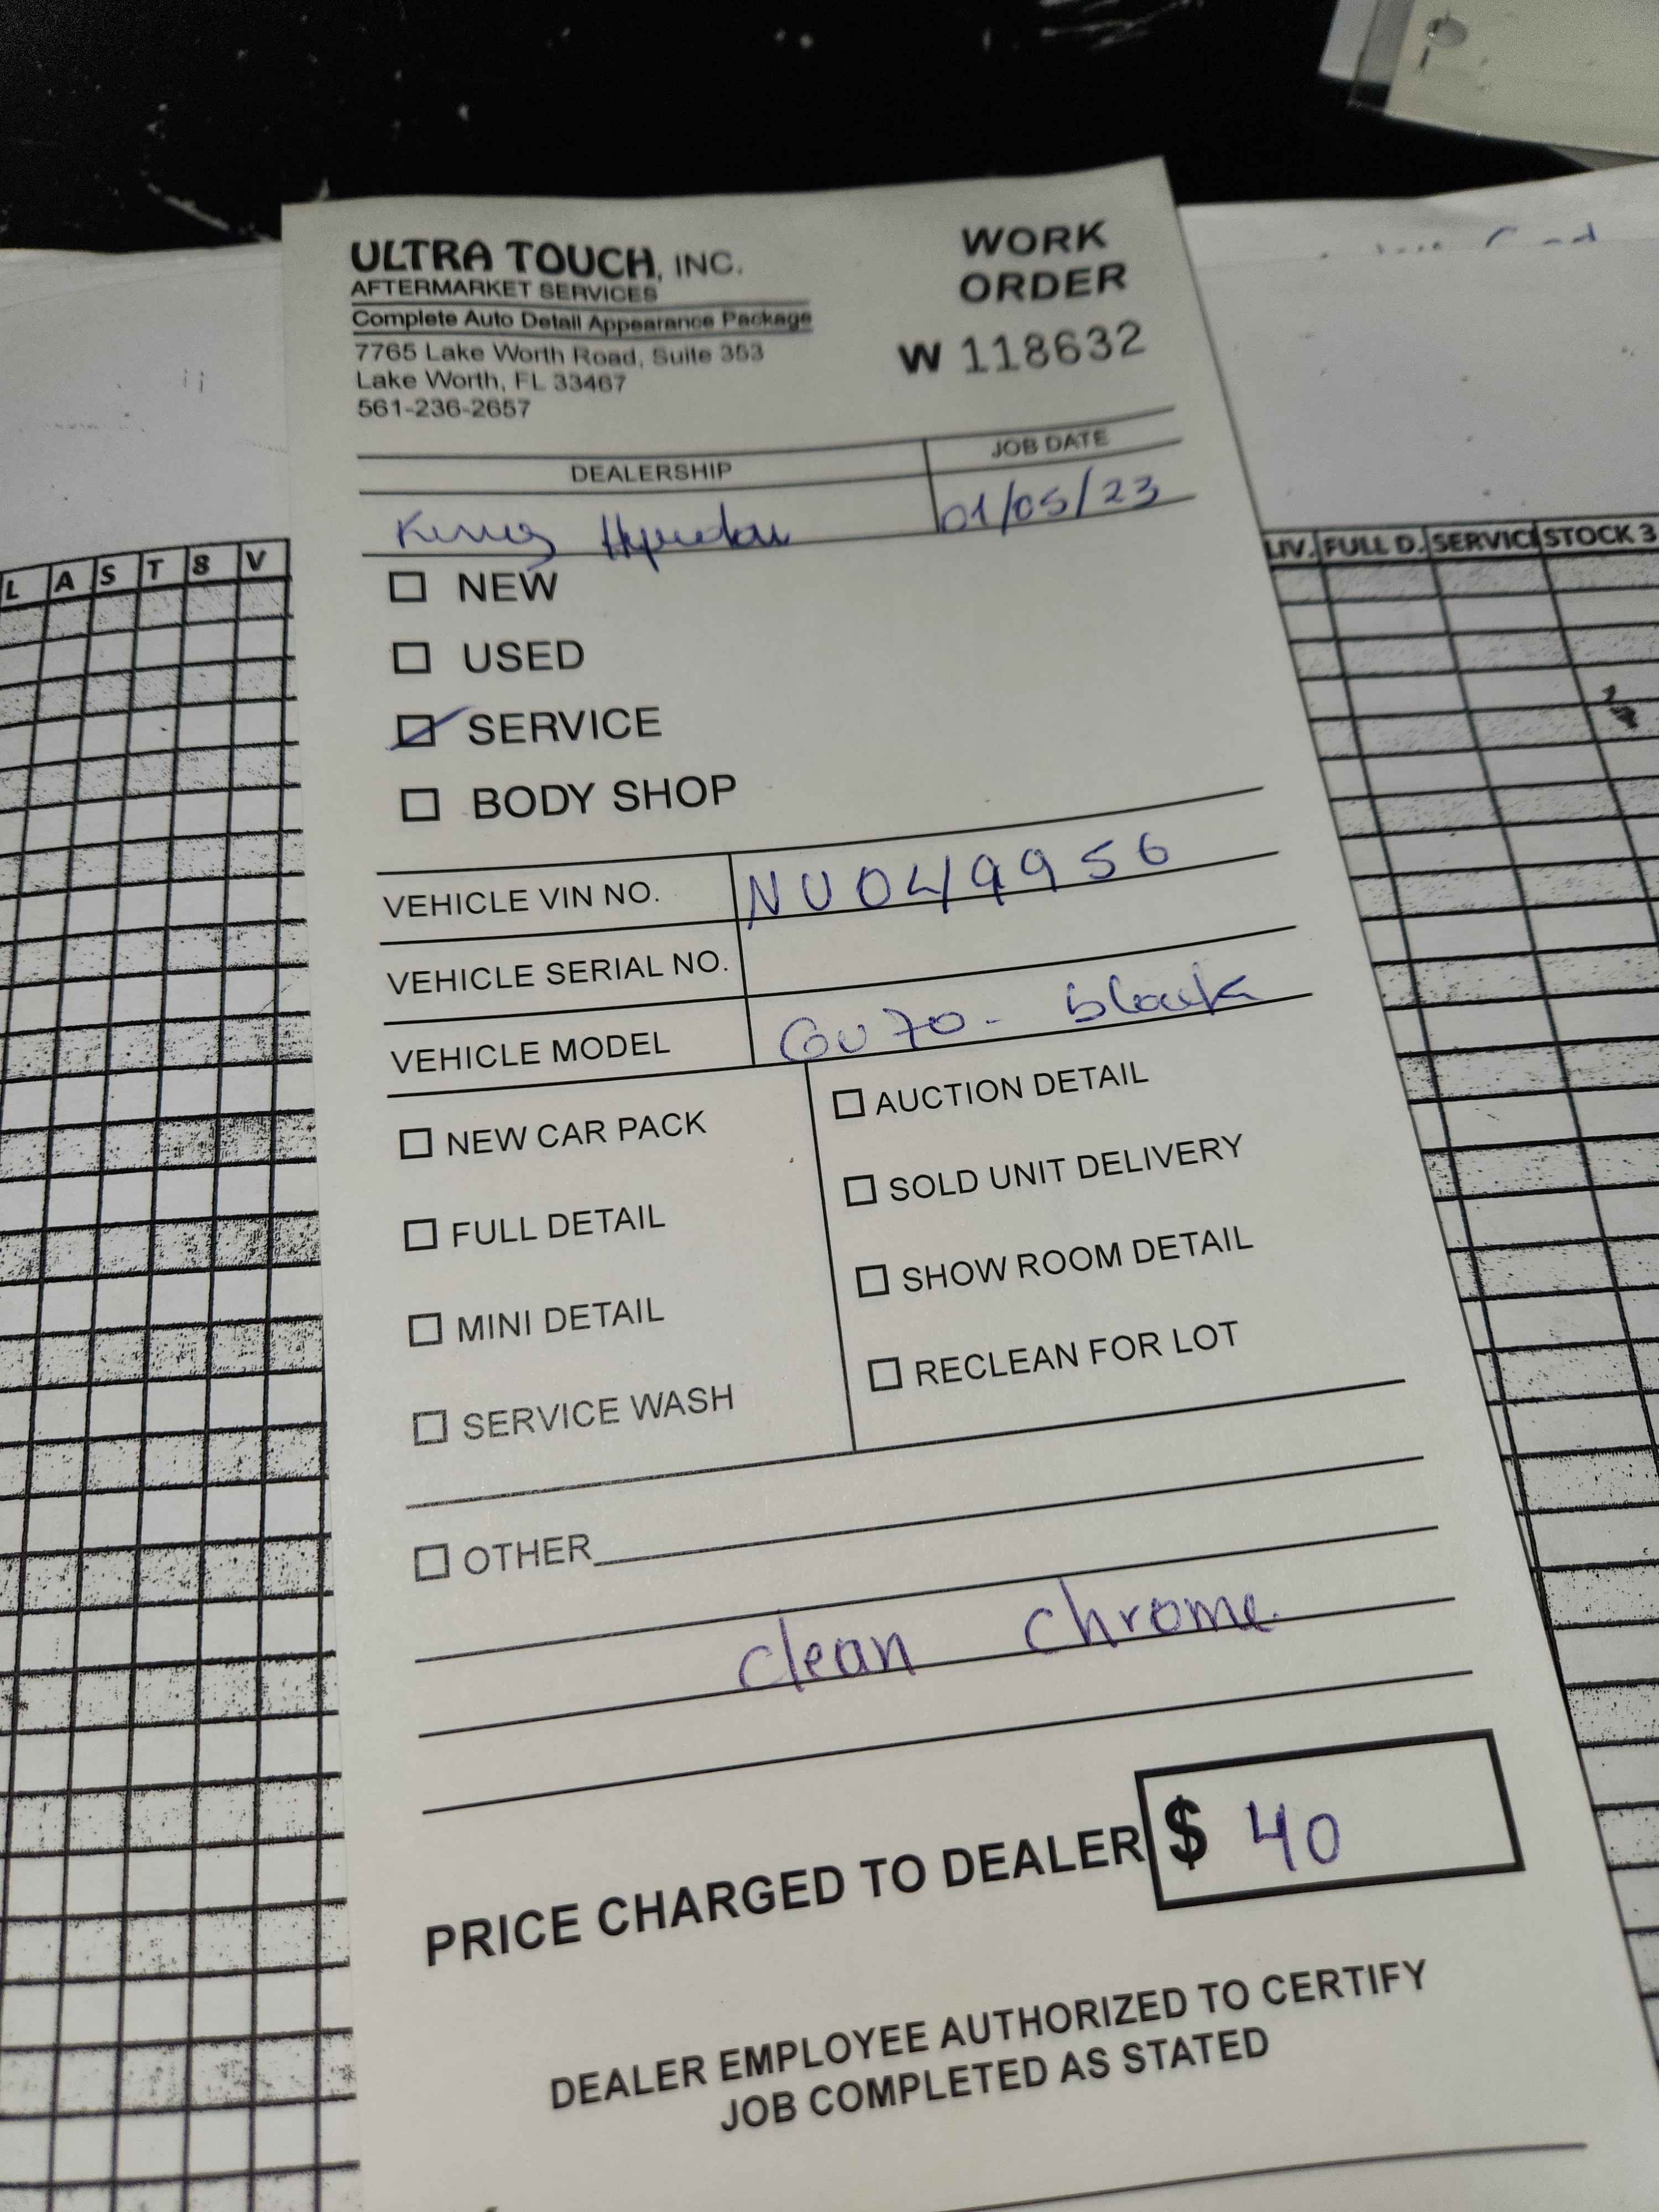 ULTRA TOUCH, INC.
AFTERMARKET SERVICES
Complete Auto Detail Appearance Package
7765 Lake Worth Road, Suite 353
Lake Worth, FL 33467
561-236-2657
WORK
ORDER
W 118632
DEALERSHIP
JOB DATE
01/05/23
NEW
USED
SERVICE
BODY SHOP
VEHICLE VIN NO. NU049956
VEHICLE SERIAL NO.
VEHICLE MODEL GV70 - black
NEW CAR PACK
FULL DETAIL
MINI DETAIL
SERVICE WASH
AUCTION DETAIL
SOLD UNIT DELIVERY
SHOW ROOM DETAIL
RECLEAN FOR LOT
OTHER
clean chrome
PRICE CHARGED TO DEALER $ 40
DEALER EMPLOYEE AUTHORIZED TO CERTIFY
JOB COMPLETED AS STATED
L A S T 8 V
LIV. FULL D. SERVIC STOCK 3